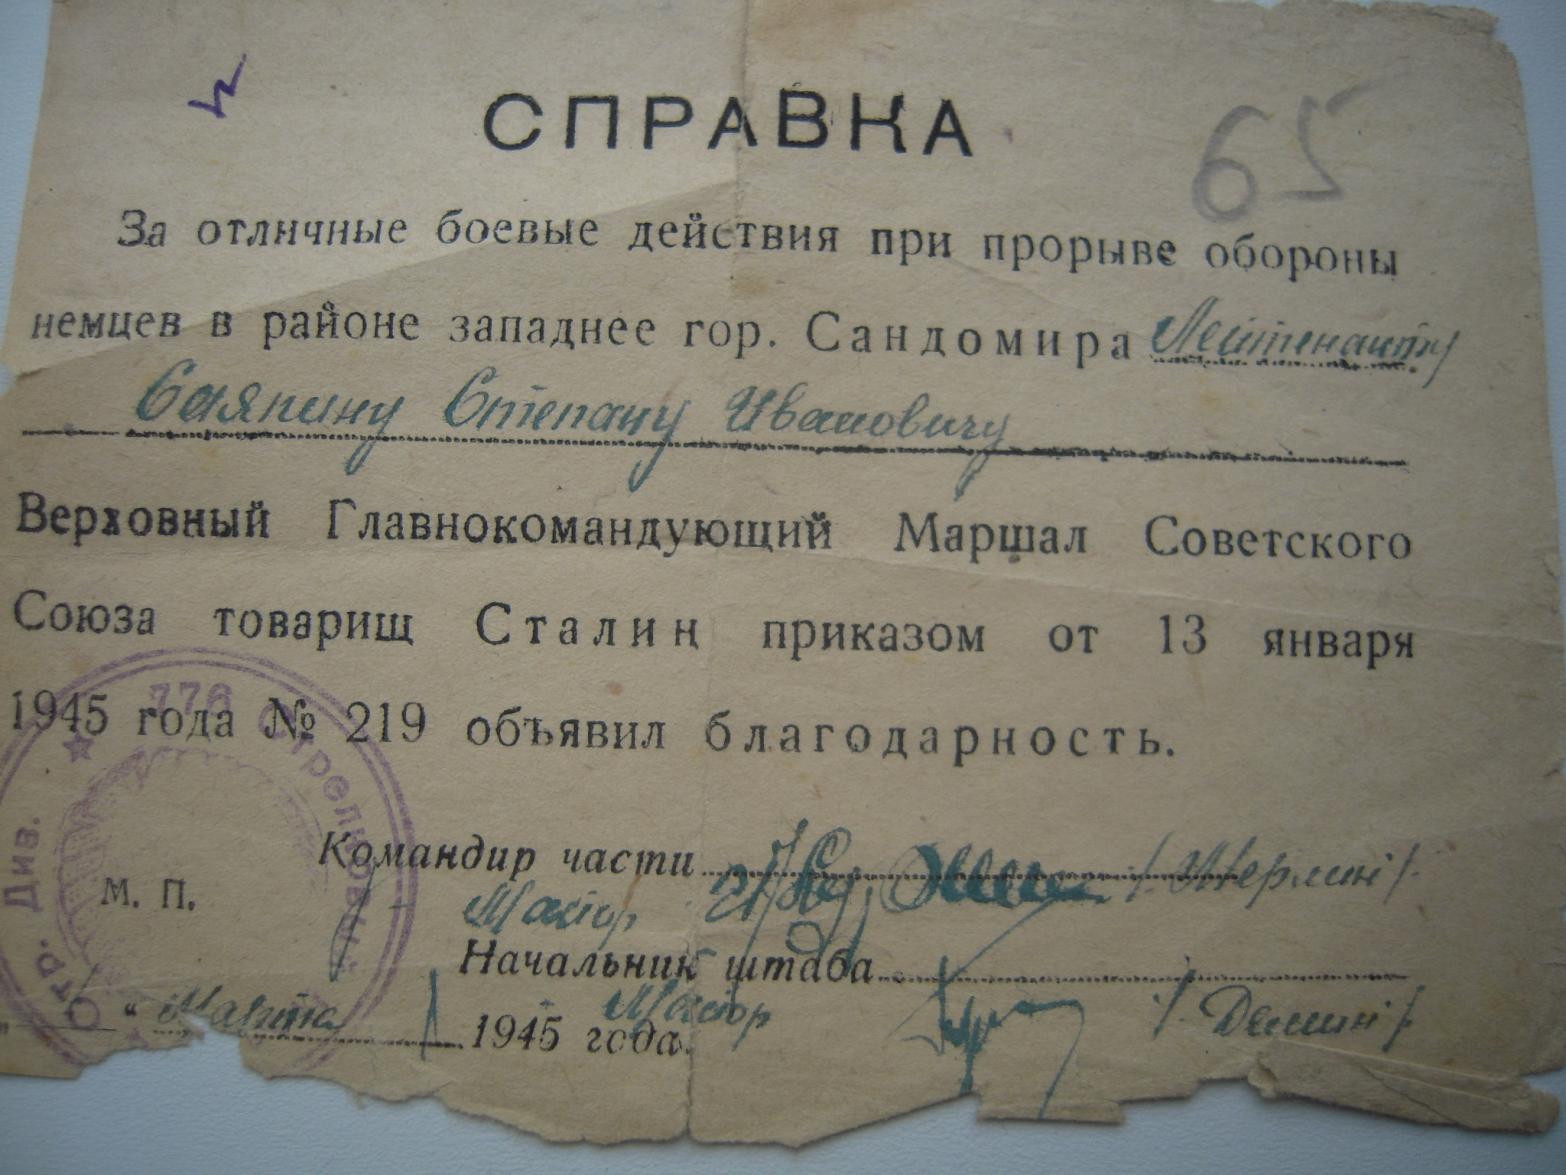 65
СПРАВКА
За отличные боевые действия при прорыве обороны
немцев в районе западнее гор. Сандомира Лейтенанту
Саяпину Степану Ивановичу
Верховный Главнокомандующий Маршал Советского
Союза товарищ Сталин приказом от 13 января
1945 года № 219 объявил благодарность.
776 Стрелковый
Стр. Див.
Командир части
М. П.
Майор
Начальник штаба
Майор /Демин/
" " Марта 1945 года.